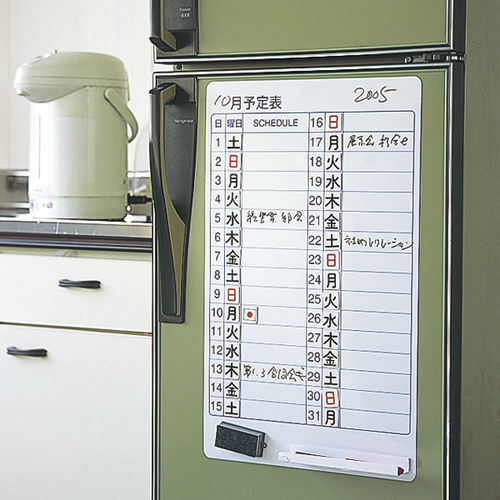 10月予定表 2005
日 曜日 SCHEDULE
1 土
2 日
3 月
4 火
5 水
6 木
7 金
8 土
9 日
10 月
11 火
12 水
13 木
14 金
15 土
16 日
17 月 展示会 打合せ
18 火
19 水
20 木
21 金
22 土 社内レクリレーション
23 日
24 月
25 火
26 水
27 木
28 金
29 土
30 日
31 月